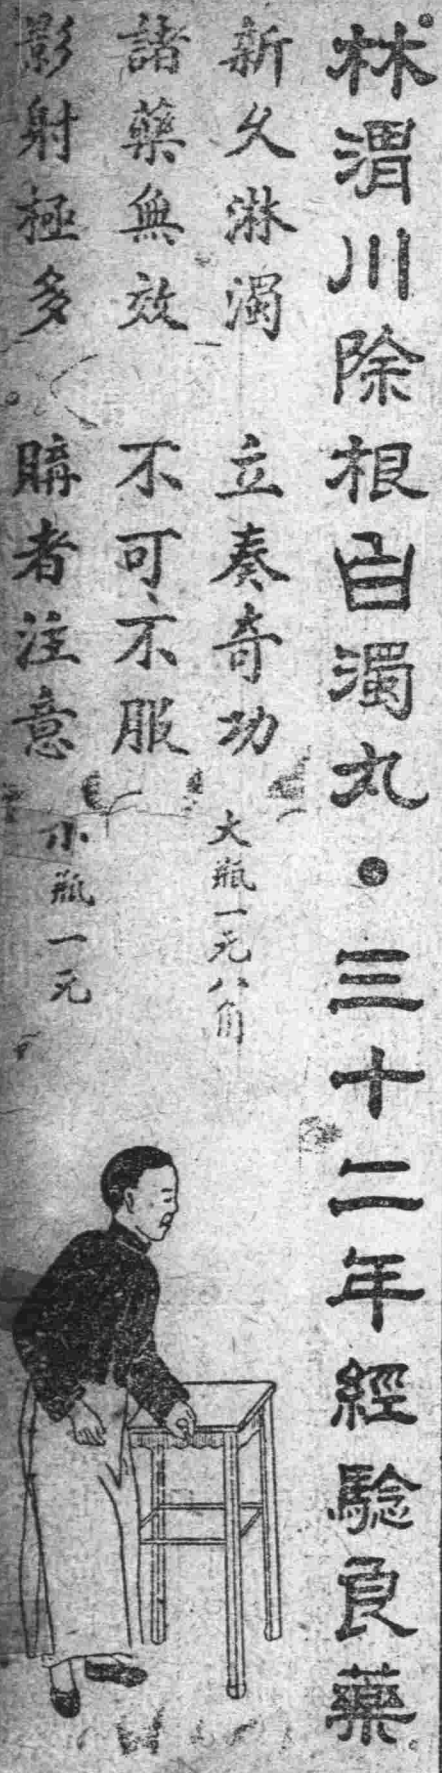 林渭川除根白濁丸●三十二年經驗良藥
新久淋濁 立奏奇功
大瓶一元八角
諸藥無效 不可不服
影射極多 購者注意
小瓶一元